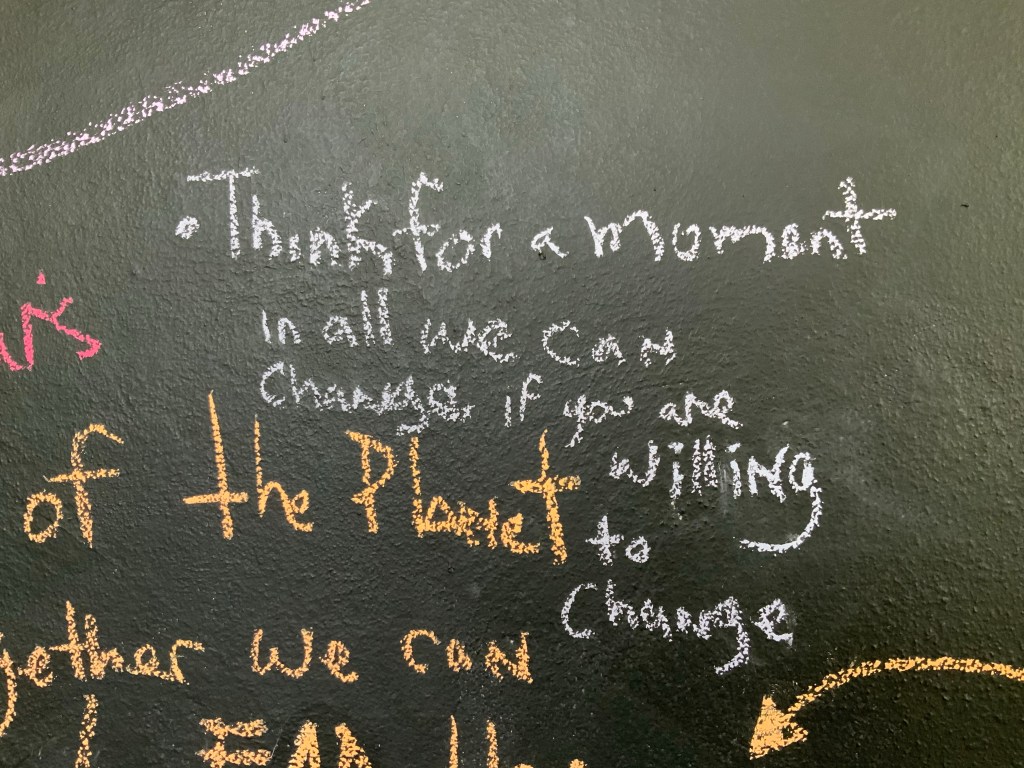 • Think for a moment
in all we can
Change. if you are
willing
to
Change
of the Planet
we can